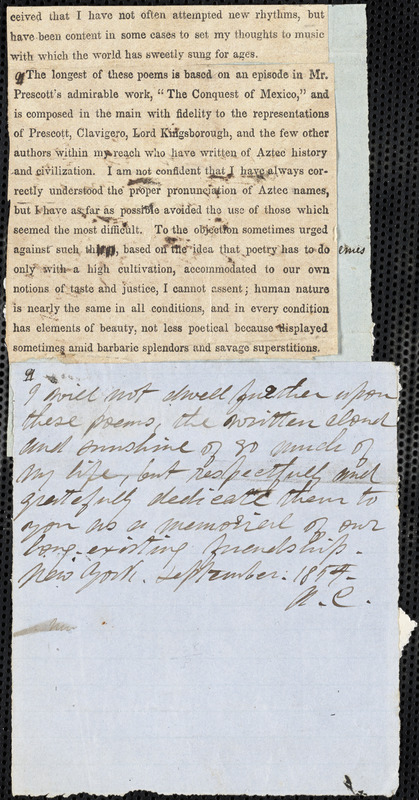 ceived that I have not often attempted new rhythms, but
have been content in some cases to set my thoughts to music
with which the world has sweetly sung for ages.
¶ The longest of these poems is based on an episode in Mr.
Prescott's admirable work, "The Conquest of Mexico," and
is composed in the main with fidelity to the representations
of Prescott, Clavigero, Lord Kingsborough, and the few other
authors within my reach who have written of Aztec history
and civilization. I am not confident that I have always cor-
rectly understood the proper pronunciation of Aztec names,
but I have as far as possible avoided the use of those which
seemed the most difficult. To the objection sometimes urged
against such themes, based on the idea that poetry has to do
only with a high cultivation, accommodated to our own
notions of taste and justice, I cannot assent; human nature
is nearly the same in all conditions, and in every condition
has elements of beauty, not less poetical because displayed
sometimes amid barbaric splendors and savage superstitions.
¶
I will not dwell further upon
these poems, the written cloud
and sunshine of so much of
my life, but respectfull and
gratefully dedicate them to
you as a memorial of our
long-existing friendship.
New York. September. 1854.
A. C.